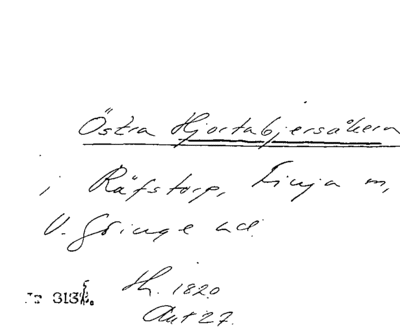 Östra Hjortabjersåkern
i Räfstorp, Linja m,
V. Göinge hd.
H. 1820
Akt 27.